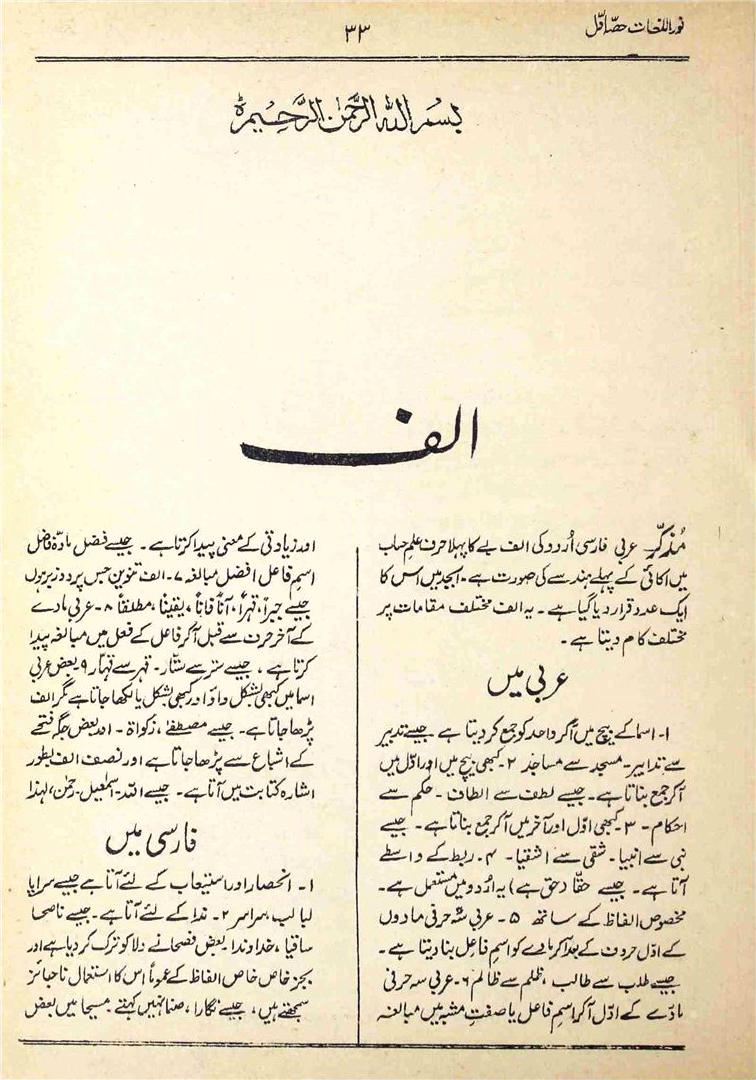 نوراللغات حصہ اوّل
۳۳
بسم اللہ الرحمٰن الرحیم
الف
مُذکّر۔ عربی فارسی اُردو کی الف بے کا پہلا حرف علمِ حساب
میں اکائی کے پہلے ہندسے کی صورت ہے۔ ابجد میں اس کا
ایک عدد قرار دیا گیا ہے۔ یہ الف مختلف مقامات پر
مختلف کام دیتا ہے۔
عربی میں
۱۔ اسما کے بیچ میں آکر واحد کو جمع کر دیتا ہے جیسے تدبیر
سے تدابیر۔ مسجد سے مساجد ۲۔ کبھی بیچ میں اور اوّل میں
آکر جمع بناتا ہے۔ جیسے لطف سے الطاف۔ حکم سے
احکام۔ ۳۔ کبھی اوّل اور آخر میں آکر جمع بناتا ہے۔ جیسے
نبی سے انبیا۔ شقی سے اشقیا۔ ۴۔ ربط کے واسطے
آتا ہے۔ جیسے حقّا (حق ہے) یہ اُردو میں مستعمل ہے۔
مخصوص الفاظ کے ساتھ ۵۔ عربی سہ حرفی مادوں
کے اوّل حروف کے بعد آکر مادے کو اسمِ فاعل بنا دیتا ہے۔
جیسے طلب سے طالب، ظلم سے ظالم ۶۔ عربی سہ حرفی
مادّے کے اوّل آکر اسمِ فاعل یا صفتِ مشبہ میں مبالغہ
اور زیادتی کے معنی پیدا کرتا ہے۔ جیسے فضل مادّہ فاضل
اسمِ فاعل افضل مبالغہ ۷۔ الف تنوین جس پر دو زبر ہوں
جیسے جبراً، قہراً، آناً فاناً، یقیناً، مطلقاً ۸۔ عربی مادے
کے آخر حرف سے قبل آکر فاعل کے فعل میں مبالغہ پیدا
کرتا ہے، جیسے ستر سے ستّار۔ قہر سے قہار ۹ بعض عربی
اسما میں کبھی بشکل واؤ اور کبھی بشکل یا لکھا جاتا ہے مگر الف
پڑھا جاتا ہے۔ جیسے مصطفےٰ، زکواۃ۔ اور بعض جگہ فتحے
کے اشباع سے پڑھا جاتا ہے اور نصف الف بطور
اشارہ کتابت میں آتا ہے۔ جیسے اللہ۔ اسمٰعیل۔ رحمٰن، لہٰذا
فارسی میں
۱۔ انحصار اور استیعاب کے لئے آتا ہے جیسے سراپا
لبالب، سراسر ۲۔ ندا کے لئے آتا ہے۔ جیسے ناصحا
ساقیا، خداوندا بعض فصحا نے دلا کو ترک کر دیا ہے اور
بجز خاص خاص الفاظ کے عموماً اس کا استعمال ناجائز
سمجھتے ہیں، جیسے نگارا، صنما نہیں کہتے۔ مسیحا میں بعض